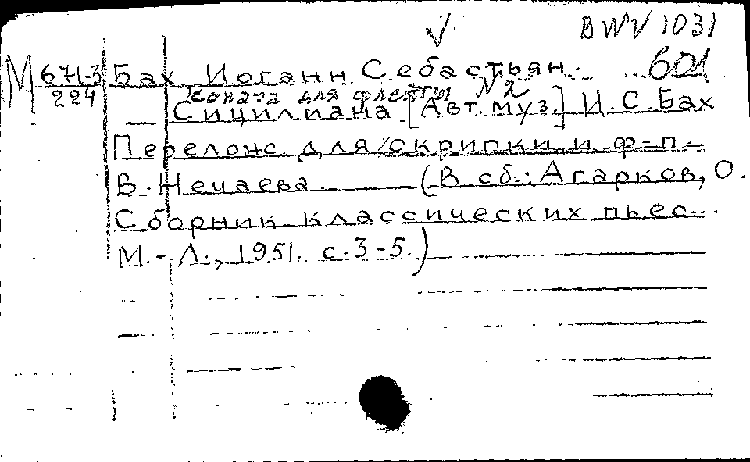 BWV 1031
М 671-3 Бах Иоганн Себастьян.
224 Соната для флейты №2
Сицилиана [Авт. муз.] И. С. Бах
Перелож. для скрипки и ф-п.
В. Нечаева (В сб.: Агарков, О.
Сборник классических пьес.
М.-Л., 1951. с. 3-5.)